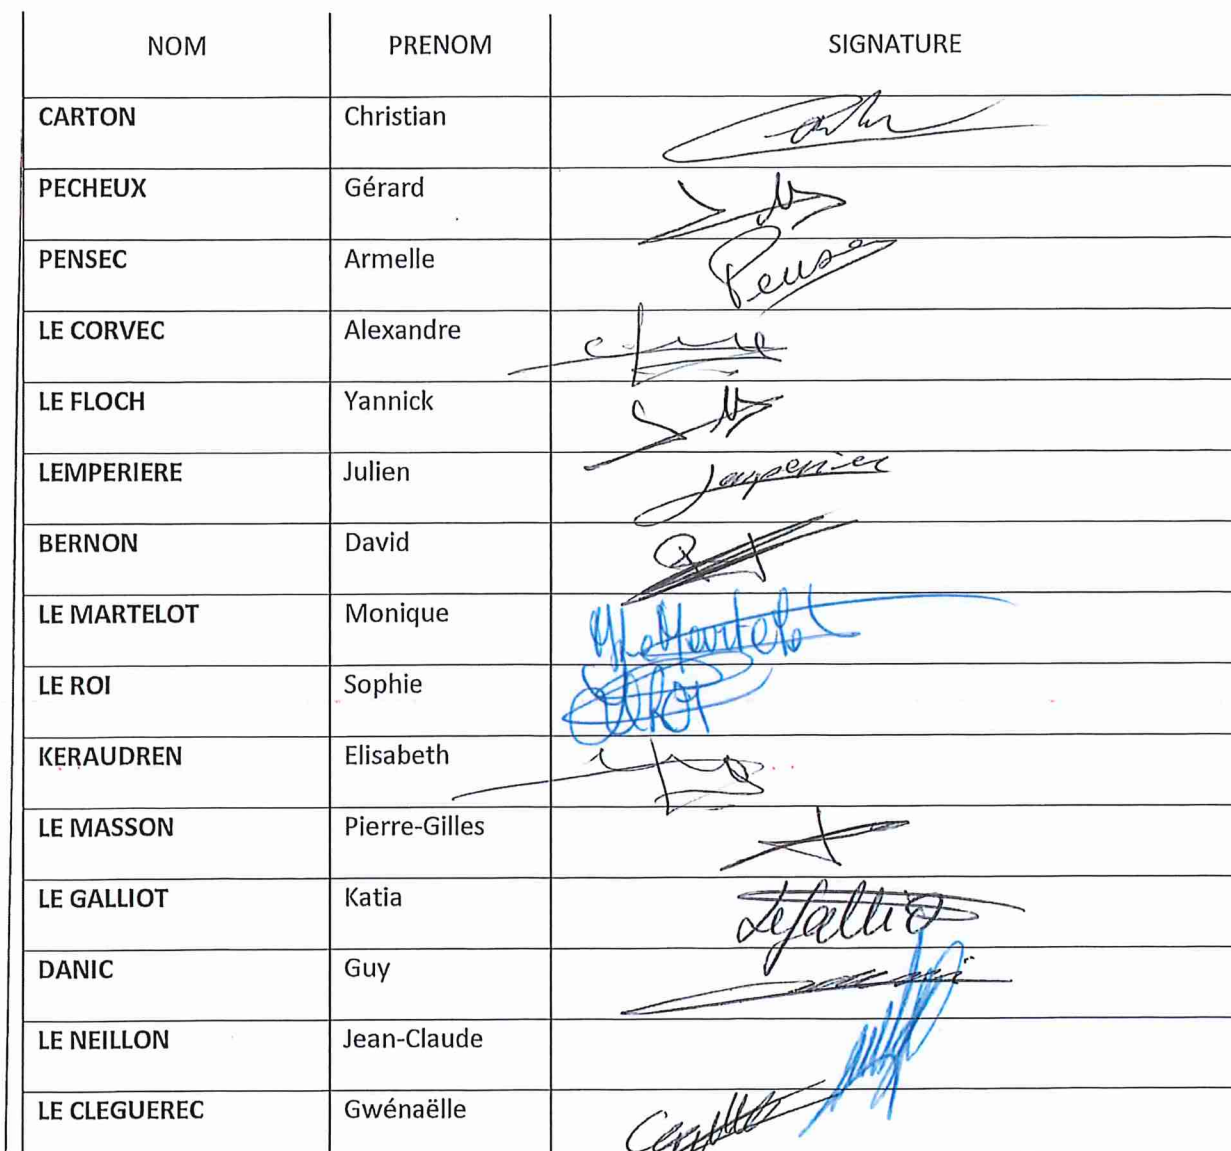 NOM PRENOM SIGNATURE
CARTON Christian
PECHEUX Gérard
PENSEC Armelle
LE CORVEC Alexandre
LE FLOCH Yannick
LEMPERIERE Julien
BERNON David
LE MARTELOT Monique M Le Martelot
LE ROI Sophie
KERAUDREN Elisabeth
LE MASSON Pierre-Gilles
LE GALLIOT Katia
DANIC Guy
LE NEILLON Jean-Claude
LE CLEGUEREC Gwénaëlle